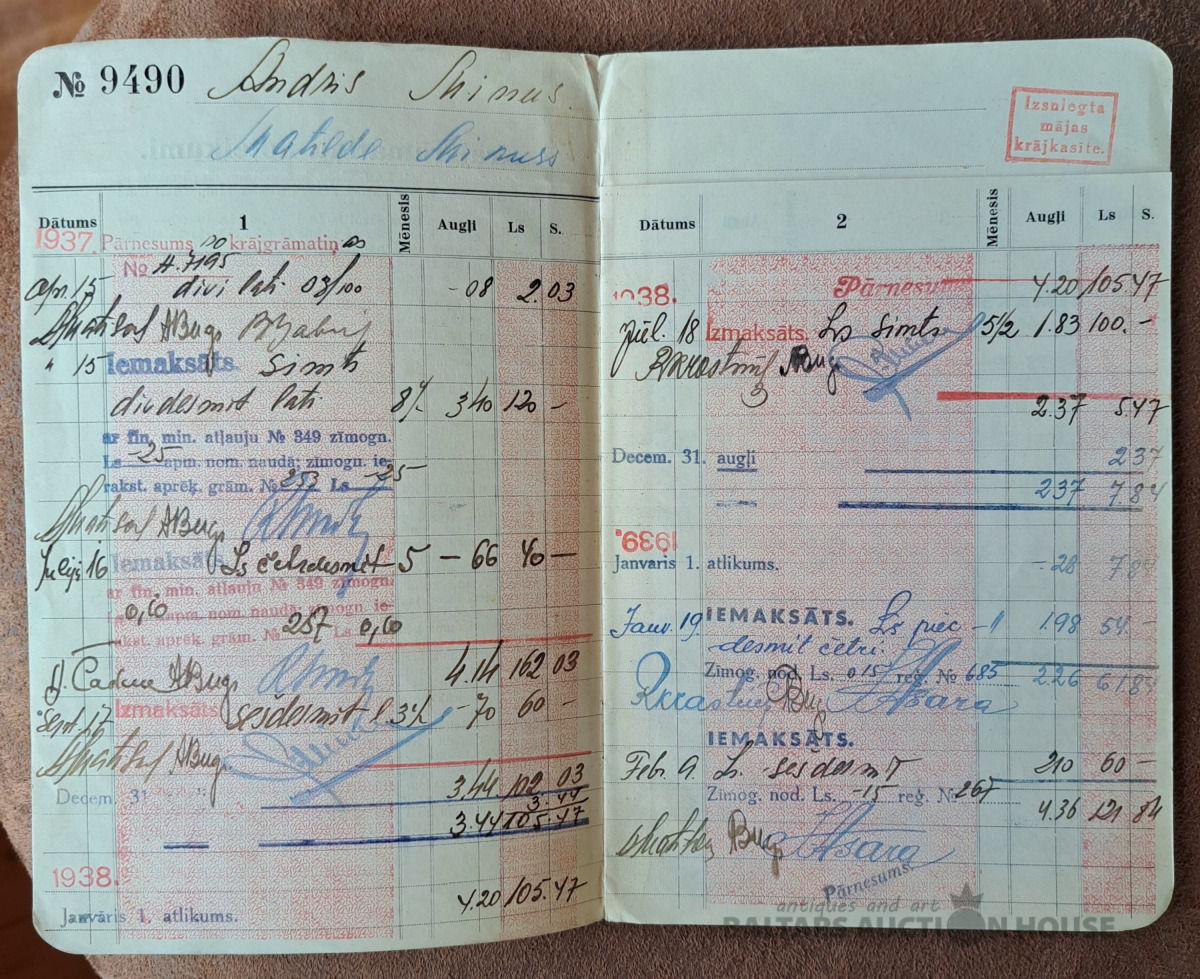 № 9490 Andris
Dātums 1 Mēnesis Augļi Ls S.
1937. Pārnesums no krājgrāmatiņas
No 4.7195
Apr. 15 divi lati 03/100 -08 2.03
ABug.
" 15 Iemaksāts simts
divdesmit lati 8½ 3 40 120 —
ar fin. min. atļauju № 349 zīmogn.
Ls -25 apm. nom. naudā; zīmogn. ie-
rakst. aprēķ. grām. № 253 Ls -25
ABug.
Jūlijs 16 Iemaksāts Ls četrdesmit 5 — 66 40 —
ar fin. min. atļauju № 349 zīmogn.
0,60 apm. nom. naudā; zīmogn. ie-
rakst. aprēķ. grām. № 257 Ls 0,60
ABug. 4.14 162 03
Sept. 17 Izmaksāts sešdesmit l. 3½ -70 60 —
ABug.
3.44 102 03
Decem. 31 " 3.44
3.44 105.47
1938.
Janvāris 1. atlikums. 4.20 105.47
Izsniegta
mājas
krājkasīte.
Dātums 2 Mēnesis Augļi Ls S.
Pārnesums 4.20 105 47
1938.
jūl. 18 Izmaksāts Ls simts 5½ 1.83 100.—
Bug.
2.37 5.47
Decem. 31. augļi 2 37
2 37 7.84
1939.
Janvaris 1. atlikums. -.28 7 84
Janv. 19. IEMAKSĀTS. Ls piec- 11 1.98 54 -
desmit četri.
Zīmog. nod. Ls. 015 reg. № 685 2.26 61 84
Bug. Asara
IEMAKSĀTS.
Febr. 9. Ls. sešdesmit 2 10 60 —
Zīmog. nod. Ls. -15 reģ. № 267
4.36 121 84
Bug. Asara
Pārnesums.
antiques and art
BALTARS AUCTION HOUSE